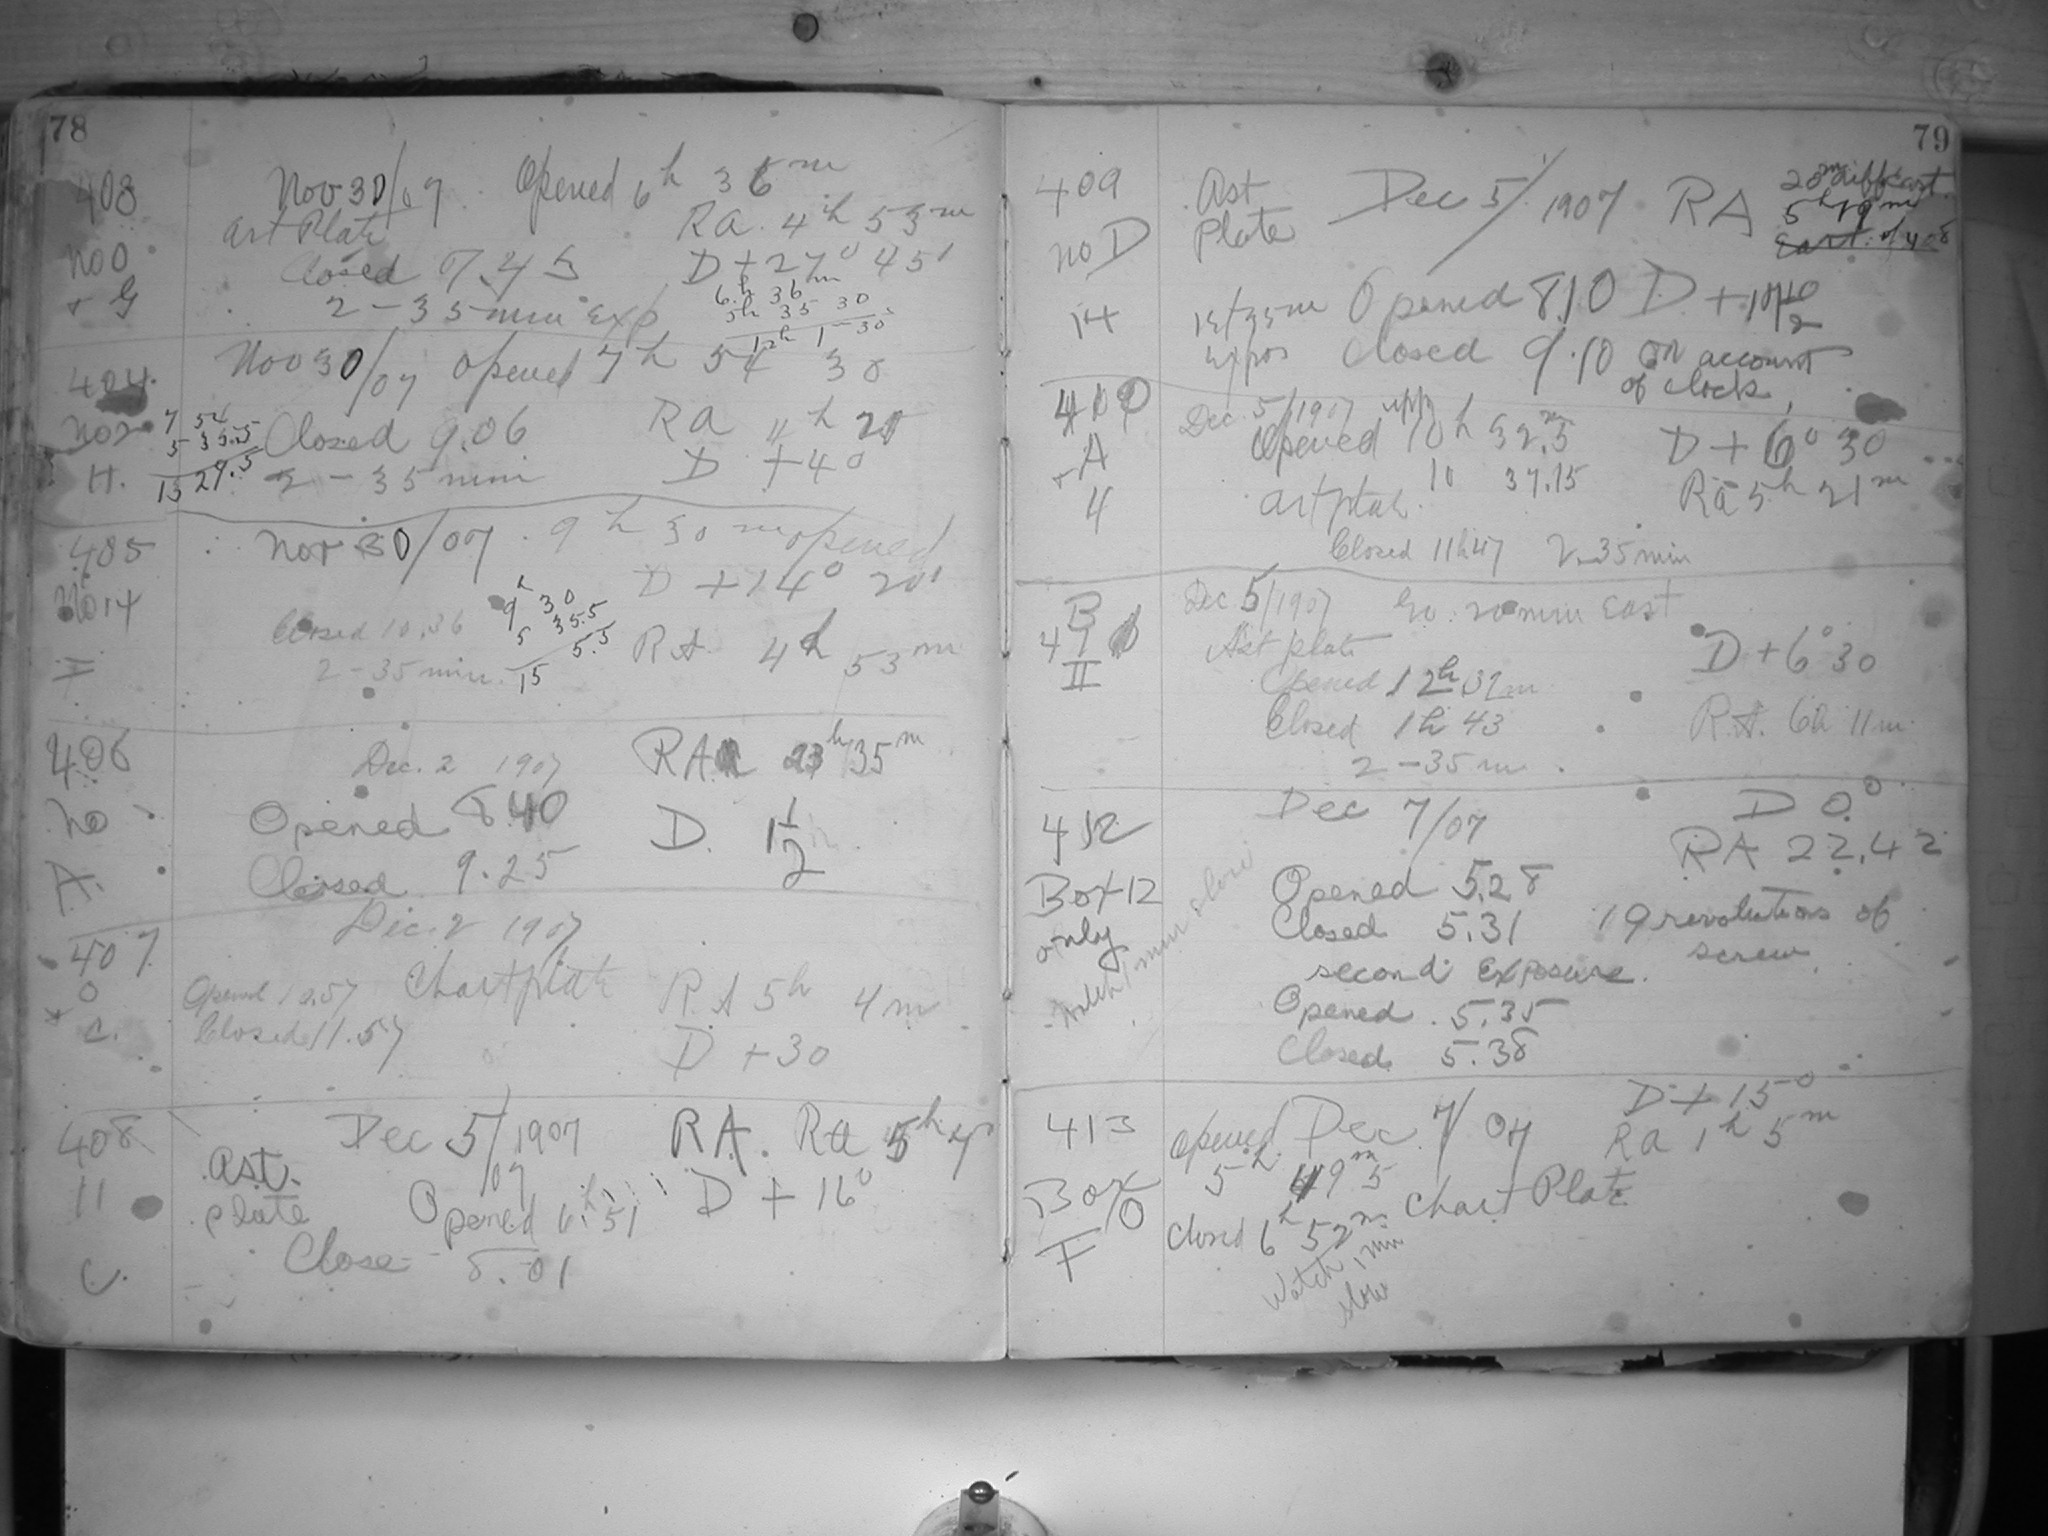 78
403
No O
+ G
Nov 30/07. Opened 6h 36m
Ast Plate RA. 4h 53m
Closed 7.45 D +27° 45'
2 - 35 min Exp
6h 36m
5h 35 30
12h 1 - 30
404
No 2
H.
Nov 30/07 Opened 7h 54 30
7 54
5 35.5
13 29.5
Closed 9.06 RA
2 - 35 min D +4°
405
No 14
I
Nov 30/07. 9h 30 m opened
D +14° 20'
Closed 10.36
9h 30
5 35.5
15 5.5
2 - 35 min. RA. 4h 53m
406
no
A.
Dec. 2 1907 RA 23h 35m
Opened 8.40 D. 1 1/2
Closed 9.25
407
O
C.
Dec. 2 1907
Opened 10.57 Chart plate RA 5h 4m
Closed 11.57 D +30
408
11
C.
Dec 5/1907 RA. Ra 5h 4
Ast. plate
07
Opened 6h 51 D + 16°
Close 8.01
79
409
no D
14
Ast Plate Dec 5/1907 RA
20m diff East
5h 19m
East of 408
Opened 8.10 D. +
Expos Closed 9.10 on account
of clock
410
+ A
4
Dec. 5/1907
Opened 10h 32.5m D + 6° 30
10 37.15 Ra 5h 21m
Ast plate.
Closed 11h 47 2-35 min
B
411
II
Dec. 5/1907 20 min East
Ast plate D + 6° 30
Opened 12h 32m
Closed 1h 43 R.A. 6h 11m.
2 - 35 m.
412
Box 12
only
Watch 1 min slow
Dec 7/07 D 0.°
RA 22.42
Opened 5.28
Closed 5.31 19 revolutions of
screw
second Exposure.
Opened. 5.35
Closed 5.38
413
Box O
F
Opened Dec. 7/07 D + 15°
5h 49m 5 Ra 1h 5m
Chart Plate
Closed 6h 52m
Watch 1 min
slow